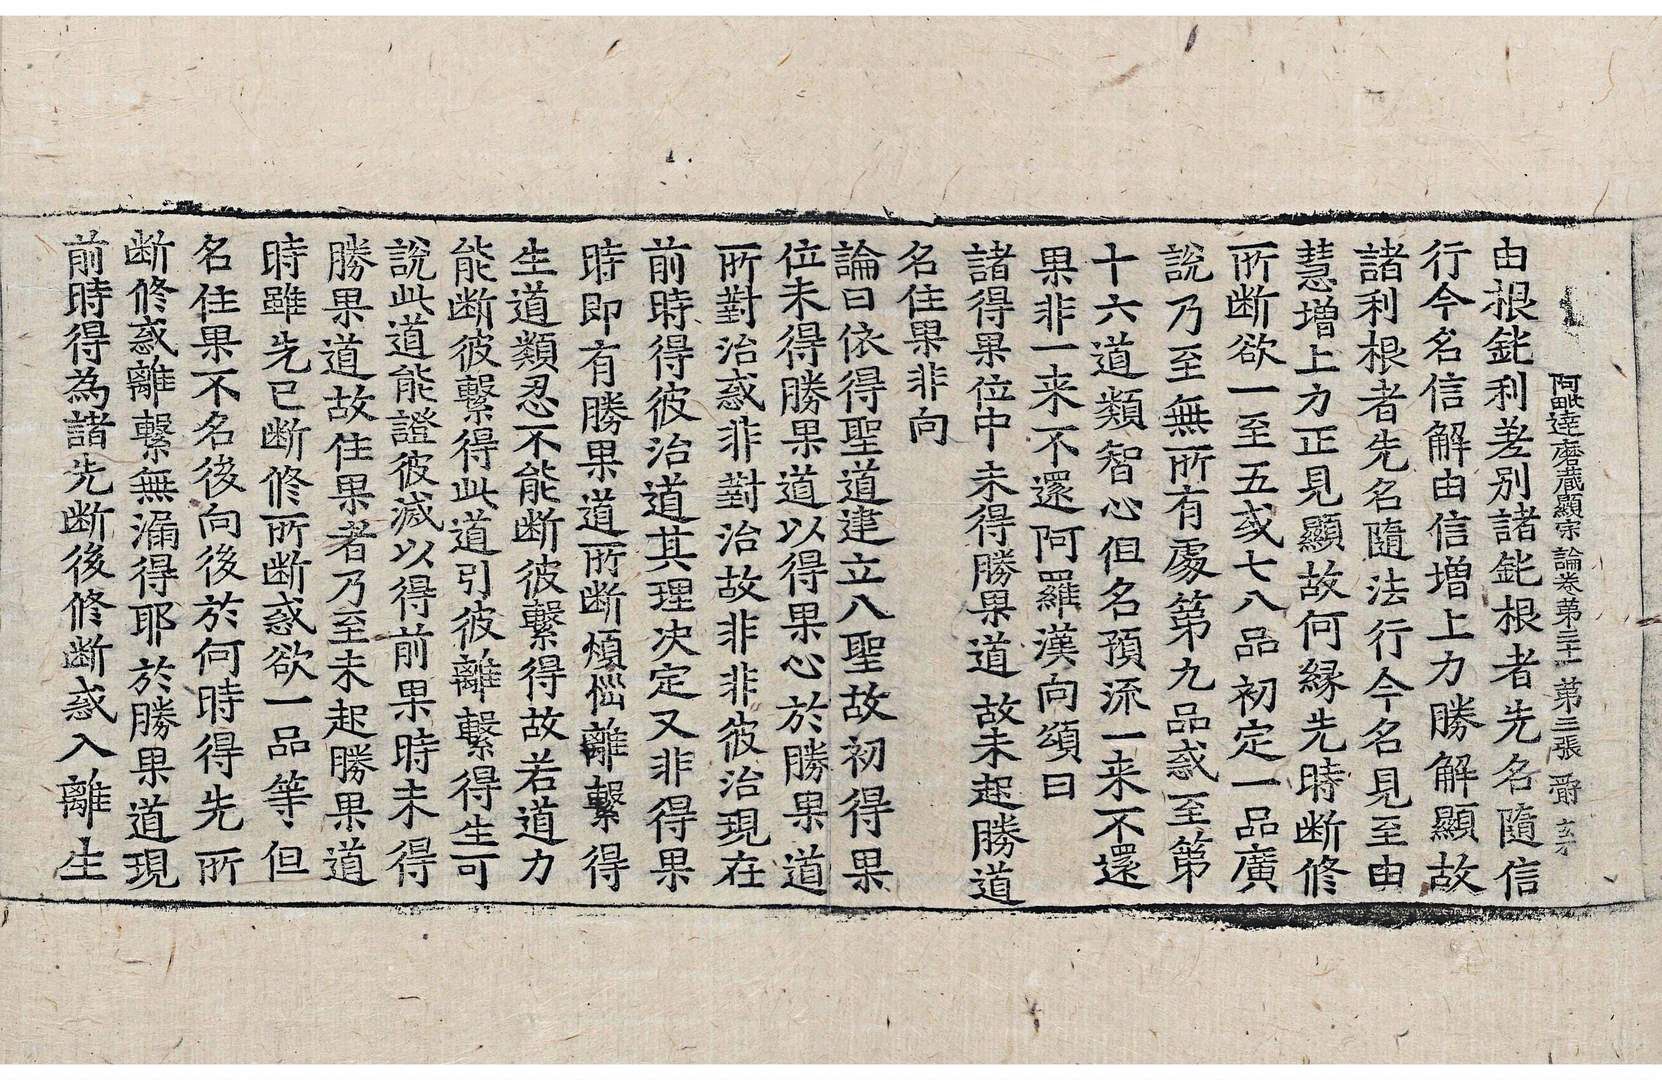 阿毗達磨藏顯宗論卷第三十一 第三張 爵
由根鈍利差別諸鈍根者先名隨信
行今名信解由信增上力勝解顯故
諸利根者先名隨法行今名見至由
慧增上力正見顯故何縁先時断修
所断欲一至五或七八品初定一品廣
說乃至無所有處第九品惑至第
十六道類智心但名預流一来不還
果非一来不還阿羅漢向頌曰
諸得果位中 未得勝果道 故未起勝道
名住果非向
論曰依得聖道建立八聖故初得果
位未得勝果道以得果心於勝果道
所對治惑非對治故非非彼治現在
前時得彼治道其理决定又非得果
時即有勝果道所断煩惱離繫得
生道類忍不能断彼繫得故若道力
能断彼繫得此道引彼離繫得生可
說此道能證彼滅以得前果時未得
勝果道故住果者乃至未起勝果道
時雖先已断修所断惑欲一品等但
名住果不名後向後於何時得先所
断修惑離繫無漏得耶於勝果道現
前時得為諸先断後修断惑入離生